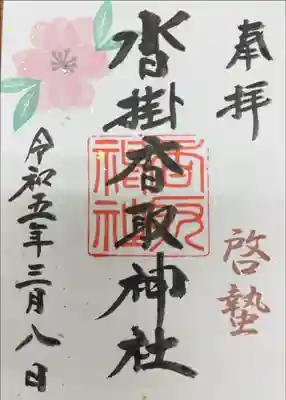 奉拝
啓蟄
沓掛香取神社
香取
神社
令和五年三月八日